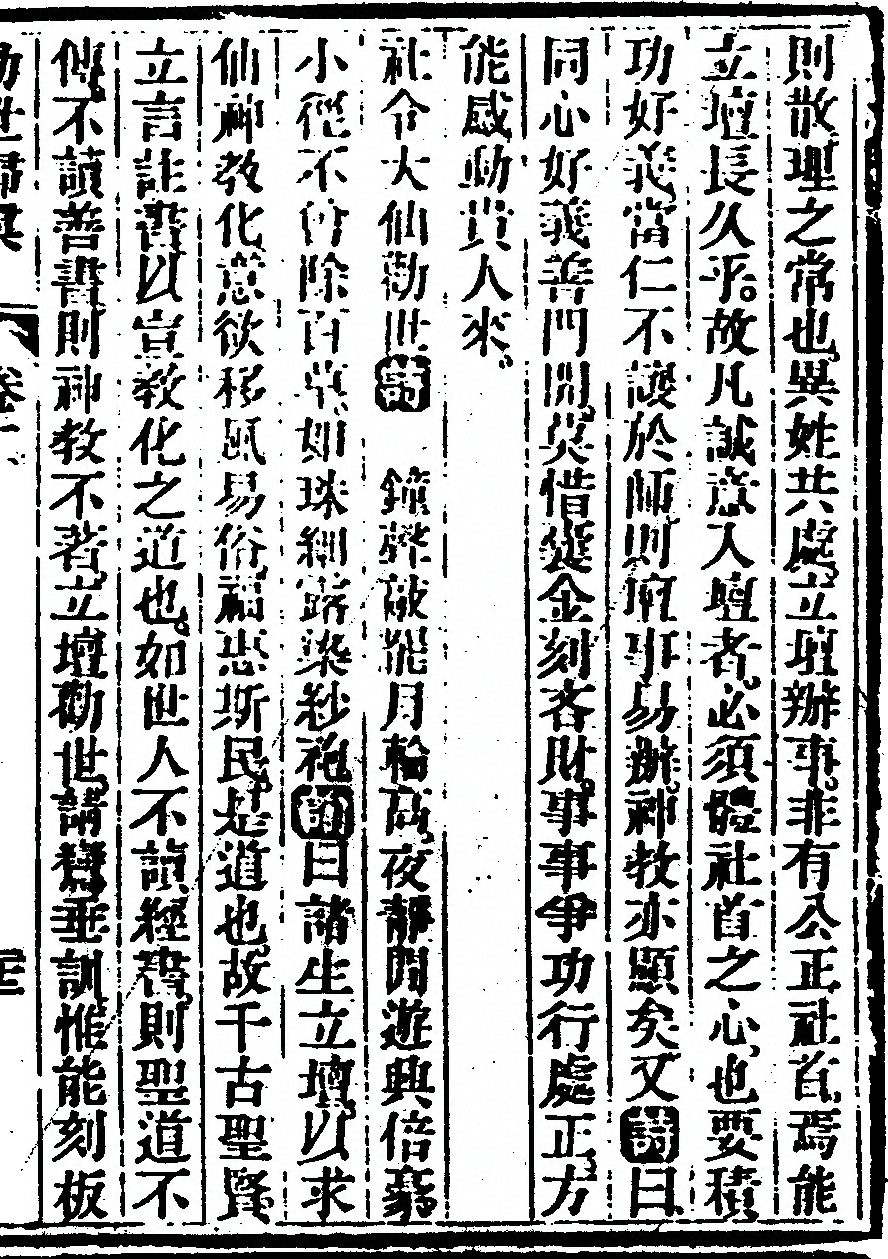 則散理之常也異姓共處立壇辦事非有公正社首焉能
立壇長久乎故凡誠意入壇者必須體社首之心也要積
功好義當仁不讓於師則壇事易辦神教亦顯矣又詩曰
同心好義善門開莫惜囊金刻吝財事事爭功行處正方
能感動貴人來
社令大仙勸世詩 鐘聲敲罷月輪高夜靜閒遊興倍豪
小徑不曾除百草如珠細露染紗袍詞曰諸生立壇以求
仙神教化意欲移風易俗福惠斯民是道也故千古聖賢
立言註書以宣教化之道也如世人不讀經書則聖道不
傳不讀善書則神教不著立壇勸世請鸞垂訓惟能刻板
勸世歸真 卷十